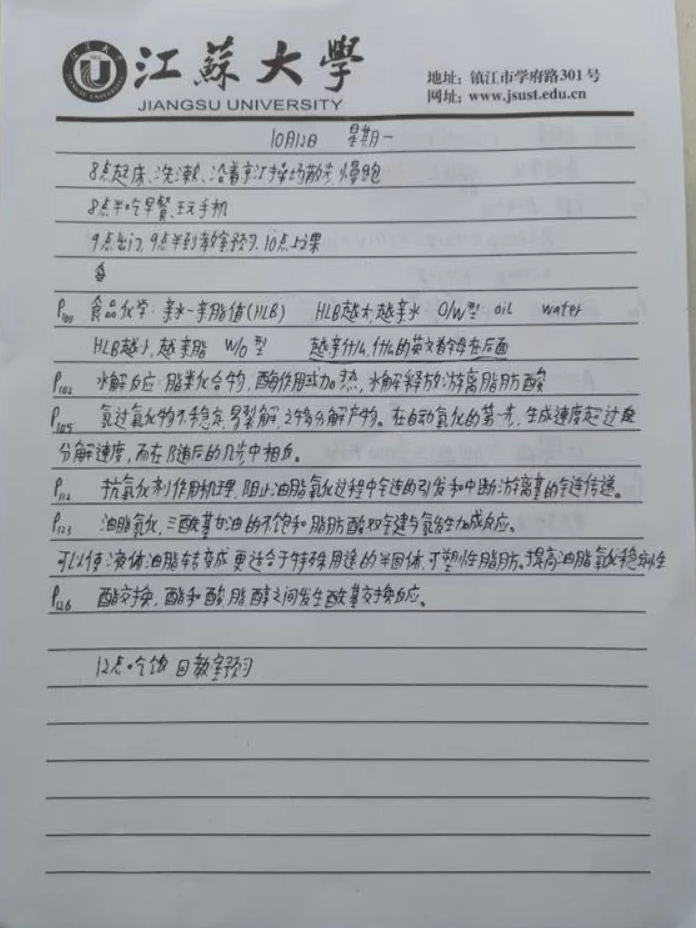 江蘇大學
JIANGSU UNIVERSITY
地址：镇江市学府路301号
网址：www.jsust.edu.cn
10月12日 星期一
8点起床、洗漱、沿着京江操场散步,慢跑
8点半吃早餐,玩手机
9点出门,9点半到教室预习,10点上课
P100 食品化学：亲水—亲脂值(HLB) HLB越大,越亲水 O/W型 oil water
HLB越小,越亲脂 W/O型 越亲什么,什么的英文首字母在后面
P102 水解反应：脂类化合物,酶作用或加热,水解释放游离脂肪酸
P105 氢过氧化物不稳定,易裂解,之后分解产物。在自动氧化的第一步,生成速度超过
分解速度,而在随后的几步中相反。
P112 抗氧化剂作用机理,阻止油脂氧化过程中链的引发和中断游离基的链传递。
P123 油脂氢化,三酰基甘油的不饱和脂肪酸双键与氢发生加成反应。
可以使液体油脂转变成更适合于特殊用途的半固体,可塑性脂肪。提高油脂氧化稳定性
P126 酯交换,酯和酸,脂,醇之间发生酰基交换反应。
12点吃饭 回教室预习